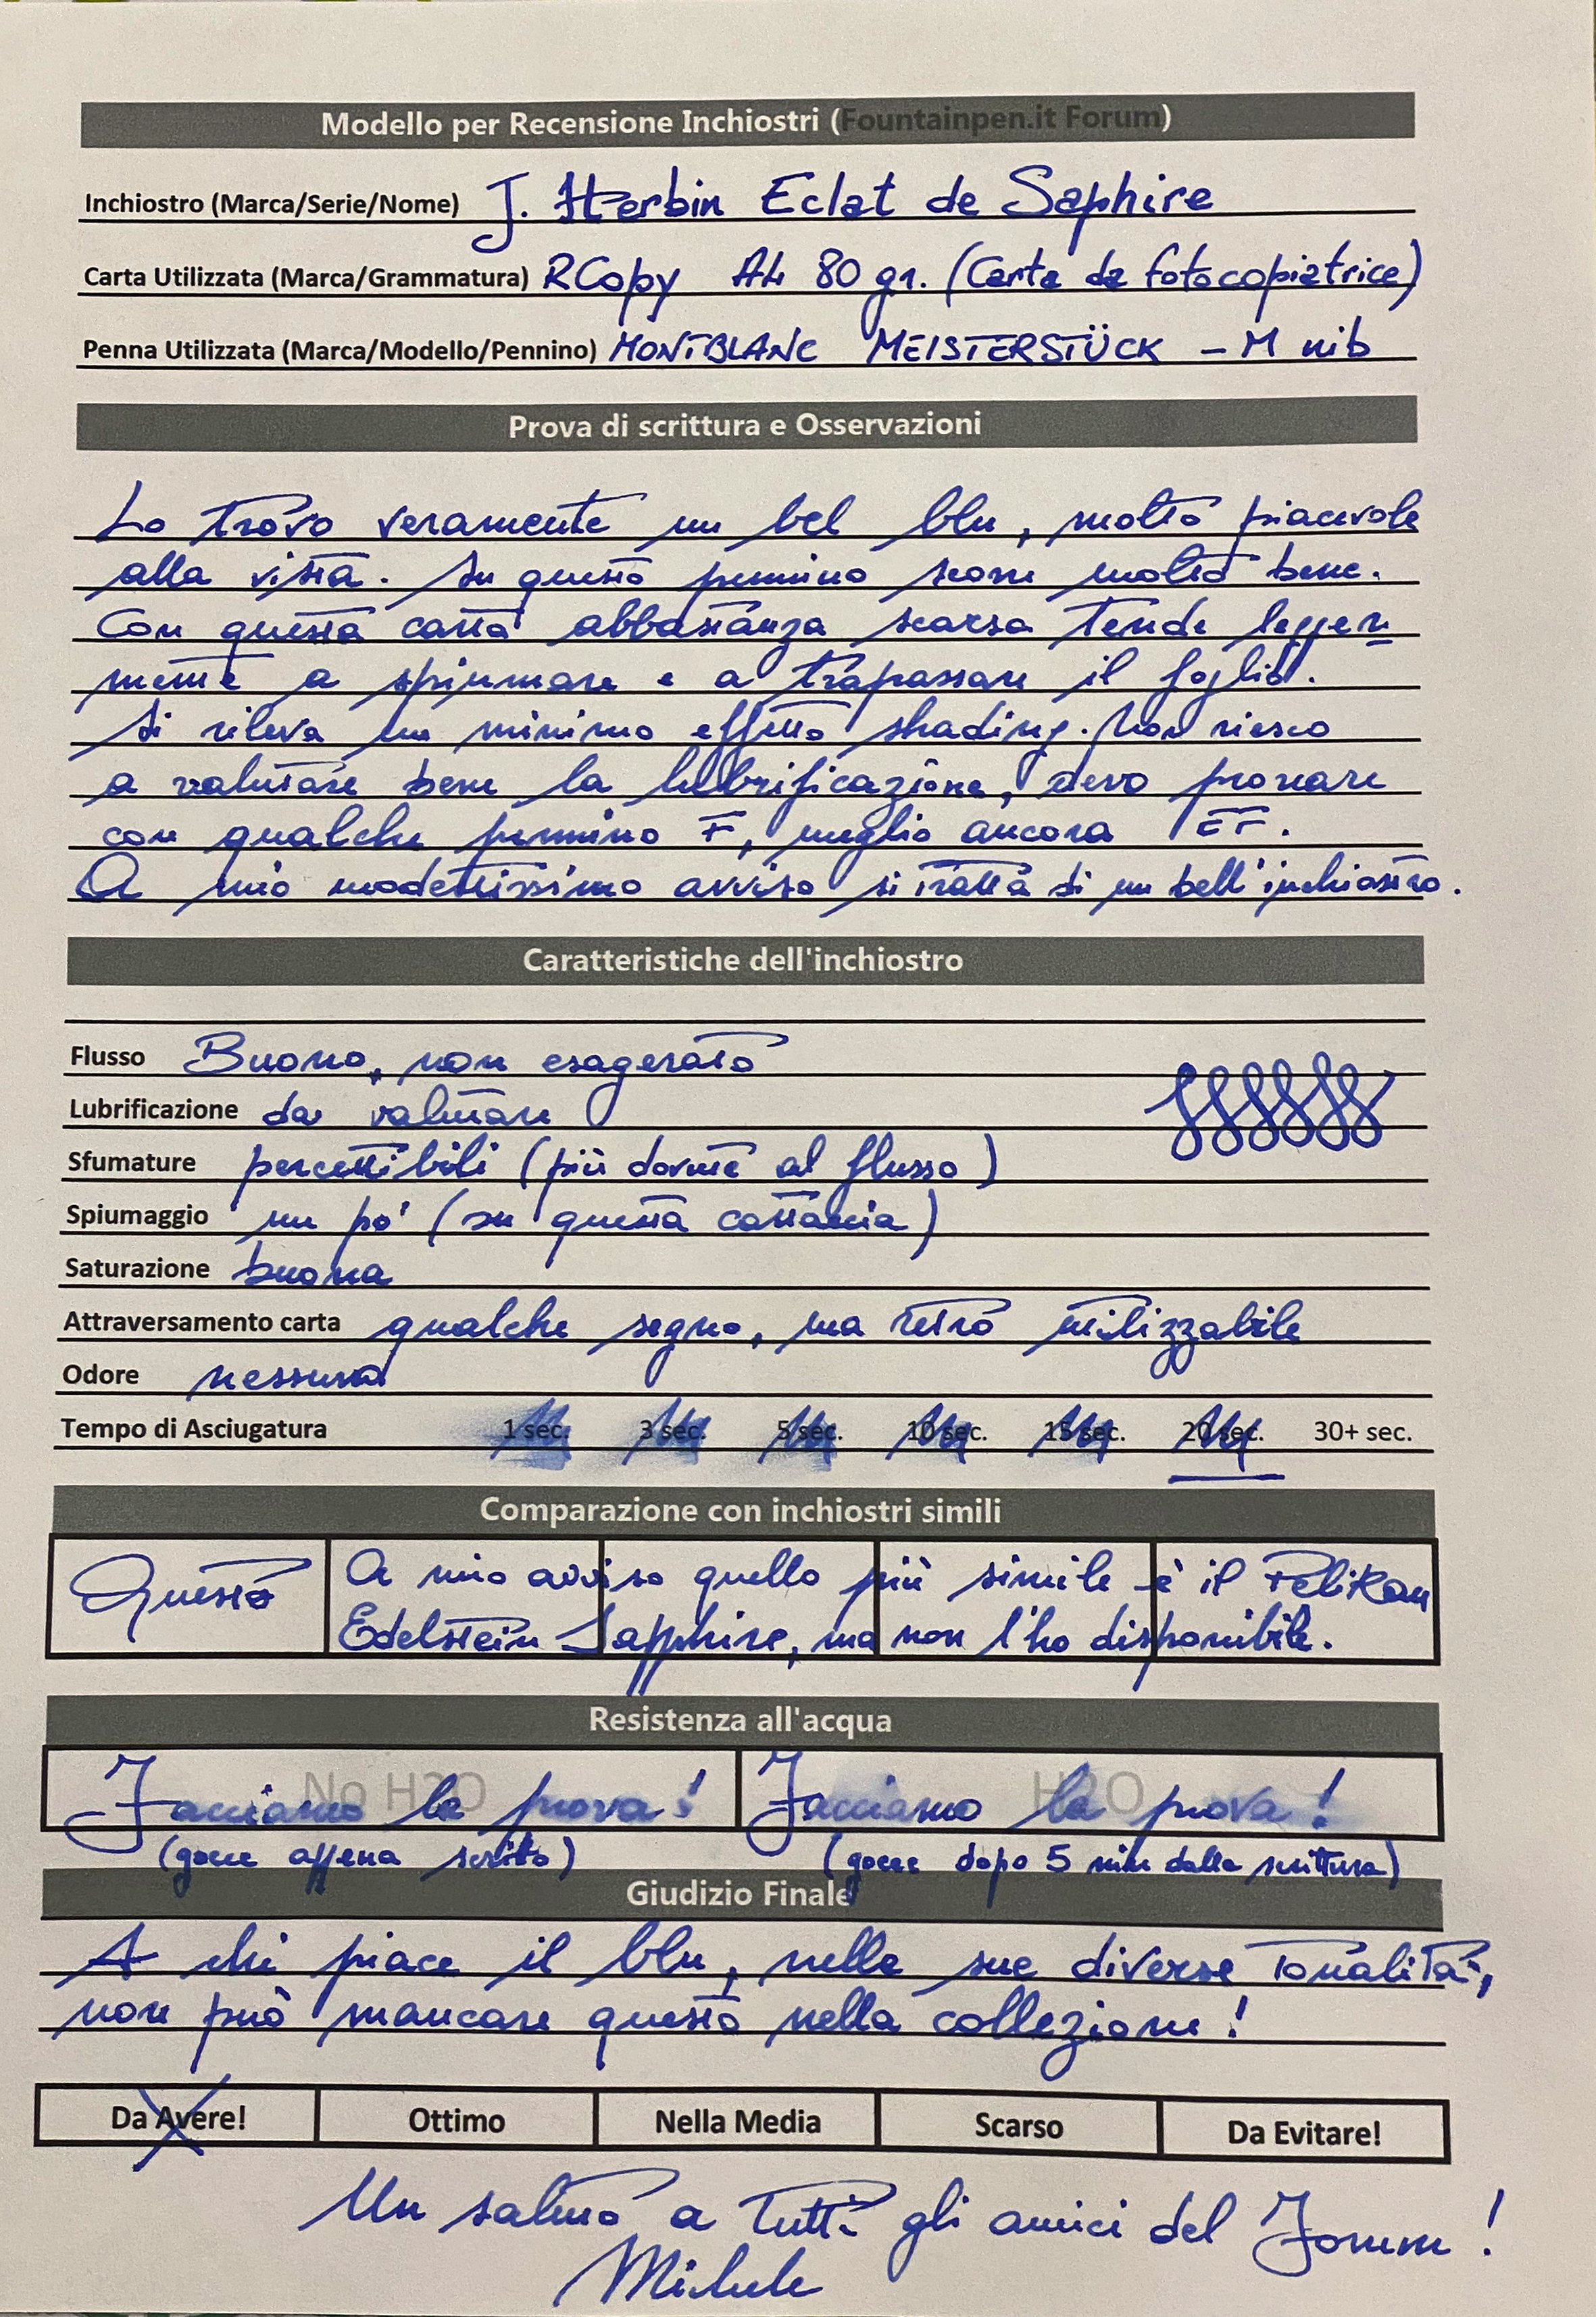 Modello per Recensione Inchiostri (Fountainpen.it Forum)
Inchiostro (Marca/Serie/Nome) J. Herbin Eclat de Saphire
Carta Utilizzata (Marca/Grammatura) RCopy A4 80 gr. (Carta da fotocopiatrice)
Penna Utilizzata (Marca/Modello/Pennino) MONTBLANC MEISTERSTÜCK - M nib
Prova di scrittura e Osservazioni
Lo trovo veramente un bel blu, molto piacevole
alla vista. Su questo pennino scorre molto bene.
Con questa carta abbastanza scarsa tende legger
mente a spiumare e a trapassare il foglio.
Si rileva un minimo effetto shading. Non riesco
a valutare bene la lubrificazione, devo provare
con qualche pennino F, meglio ancora EF.
A mio modestissimo avviso si tratta di un bell'inchiostro.
Caratteristiche dell'inchiostro
Flusso Buono, non esagerato
Lubrificazione da valutare
Sfumature percettibili (più dovute al flusso)
Spiumaggio un po' (su questa cartaccia)
Saturazione buona
Attraversamento carta qualche segno, ma retro utilizzabile
Odore nessuno
Tempo di Asciugatura 1 sec. 3 sec. 5 sec. 10 sec. 15 sec. 20 sec. 30+ sec.
Comparazione con inchiostri simili
Questo A mio avviso quello più simile è il Pelikan
Edelstein Sapphire, ma non l'ho disponibile.
Resistenza all'acqua
No H2O H2O
Facciamo la prova! Facciamo la prova!
(gocce appena scritto) (gocce dopo 5 min dalla scrittura)
Giudizio Finale
A chi piace il blu, nelle sue diverse tonalità,
non può mancare questo nella collezione!
Da Avere! Ottimo Nella Media Scarso Da Evitare!
Un saluto a tutti gli amici del Forum!
Michele